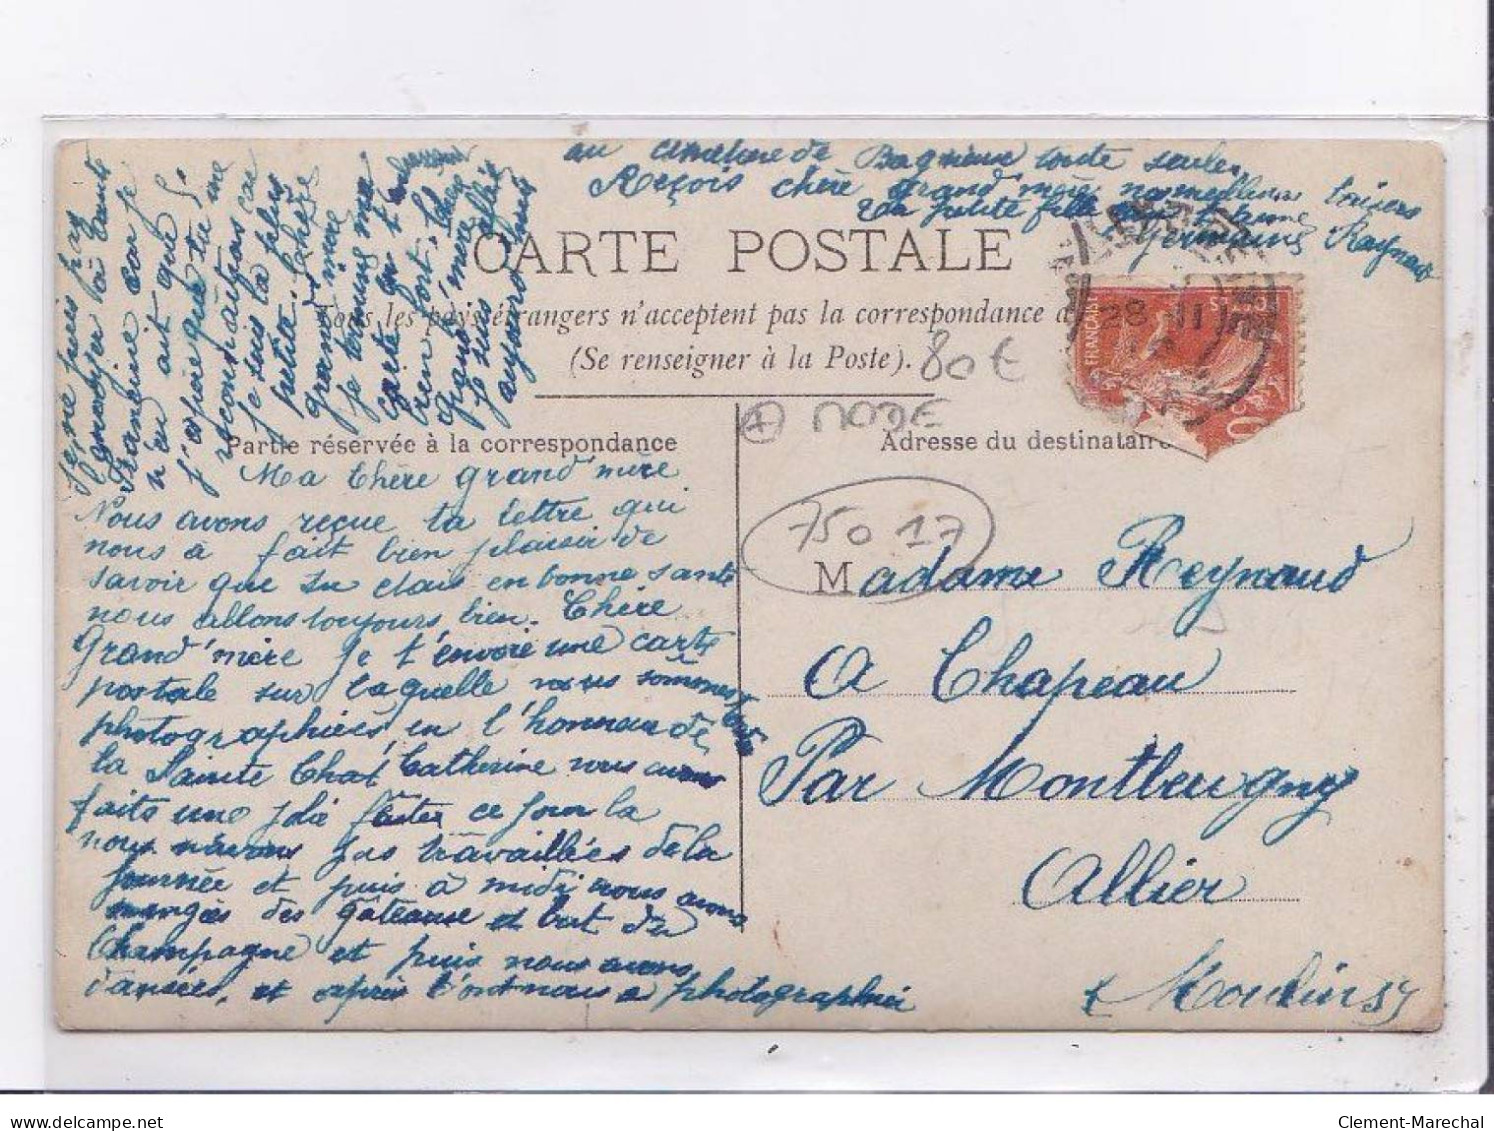 au cimetière de Bagneux toute seule,
Reçois chère grand'mère nos meilleurs baisers
Ta petite fille qui t'aime
Germaine Raynaud
CARTE POSTALE
Tous les pays étrangers n'acceptent pas la correspondance a
(Se renseigner à la Poste).
80€
+ MODE
Partie réservée à la correspondance
Adresse du destinataire
FRANÇAISE
28 11
Ma Chère grand'mère
Nous avons reçue ta lettre qui
nous à fait bien plaisir de
savoir que tu étais en bonne santé
nous allons toujours bien. Chère
Grand'mère je t'envoie une carte
postale sur laquelle nous sommes
photographiées en l'honneur de
la Sainte Chat Catherine nous avons
faits une jolie fête ce jour la
nous n'avons pas travaillées de la
journée et puis à midi nous avons
mangés des gâteaux et but du
Champagne et puis nous avons
dansées, et après l'ont nous a photographiées
75017
Madame Reynaud
A Chapeau
Par Montbeugny
Allier
Moulins
je ne puis pas
envoyer à tante
Françoise car je
n'en ait que
j'espère que tu me
reconnaîtras car
je suis la plus
petite. Chère
grand'mère
je termine ma
carte en t'embrassant
bien fort. Chère
grand'mère
je suis allée
aujourd'hui
Clement-Marechal